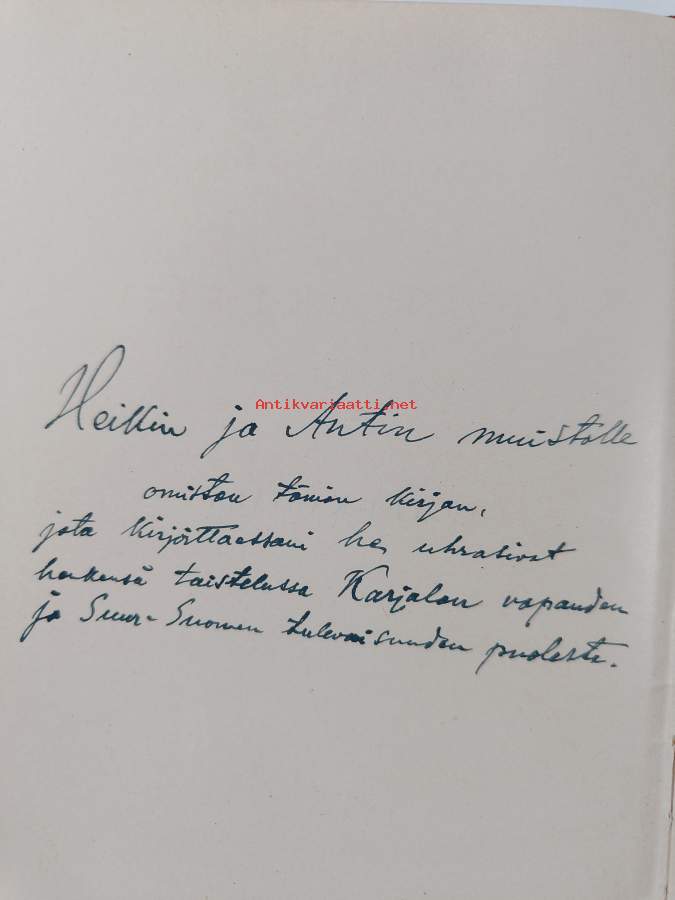 Antikvariaatti.net
Heikin ja Antin muistolle
omistan tämän kirjan,
jota kirjoittaessani he uhrasivat
henkensä taistelussa Karjalan vapauden
ja Suur-Suomen tulevaisuuden puolesta.